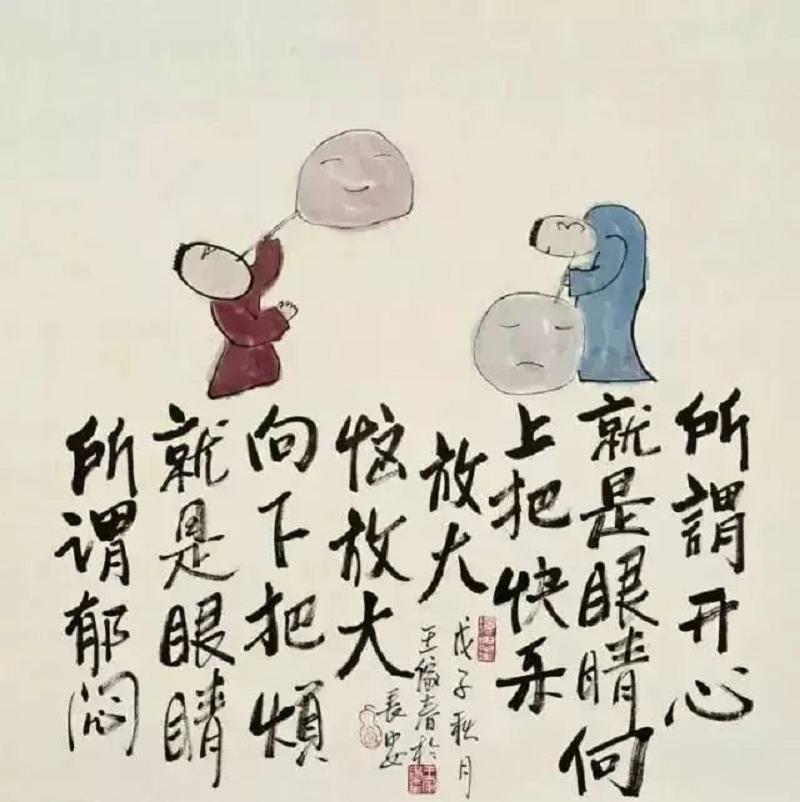 所謂开心
就是眼睛向
上把快乐
放大
所谓郁闷
就是眼睛
向下把煩
恼放大
戊子秋月
王家春於
長安